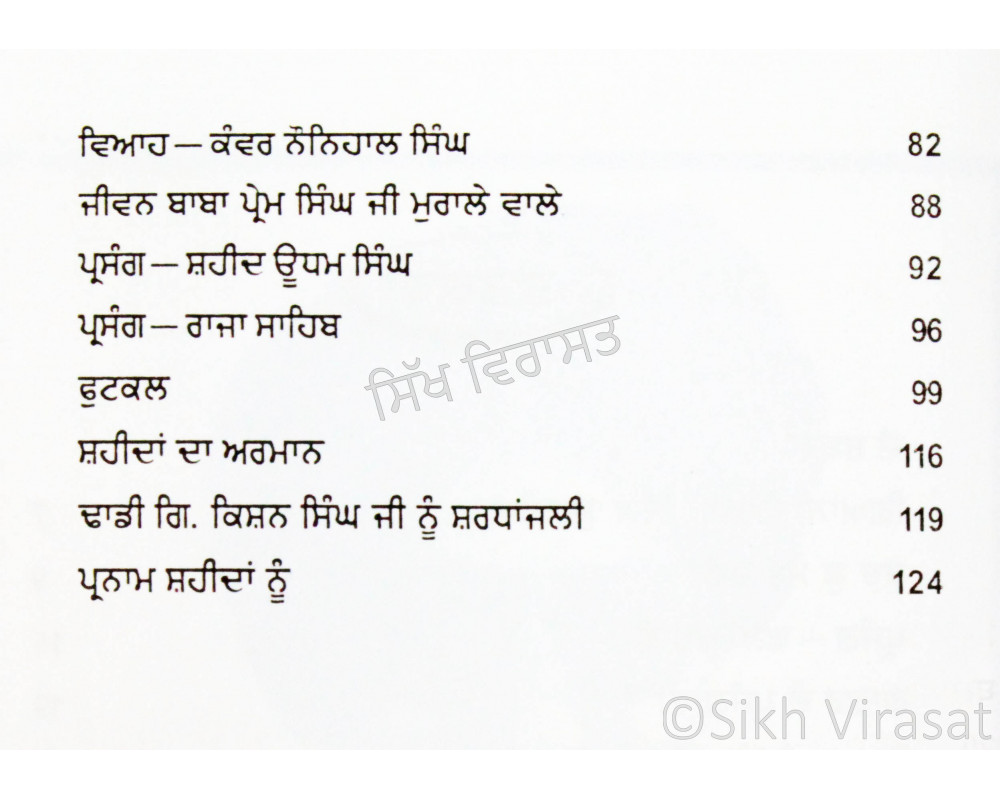 ਵਿਆਹ — ਕੰਵਰ ਨੌਨਿਹਾਲ ਸਿੰਘ 82
ਜੀਵਨ ਬਾਬਾ ਪ੍ਰੇਮ ਸਿੰਘ ਜੀ ਮੁਰਾਲੇ ਵਾਲੇ 88
ਪ੍ਰਸੰਗ — ਸ਼ਹੀਦ ਊਧਮ ਸਿੰਘ 92
ਪ੍ਰਸੰਗ — ਰਾਜਾ ਸਾਹਿਬ 96
ਫੁਟਕਲ 99
ਸਿੱਖ ਵਿਰਾਸਤ
ਸ਼ਹੀਦਾਂ ਦਾ ਅਰਮਾਨ 116
ਢਾਡੀ ਗਿ. ਕਿਸ਼ਨ ਸਿੰਘ ਜੀ ਨੂੰ ਸ਼ਰਧਾਂਜਲੀ 119
ਪ੍ਰਨਾਮ ਸ਼ਹੀਦਾਂ ਨੂੰ 124
©Sikh Virasat